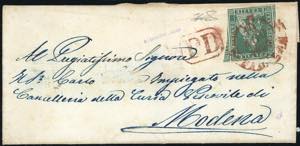 P.D.
Al Pregiatissimo Signore
Carlo Impiegato nella
Cancelleria della Curia Vescovile di
Modena